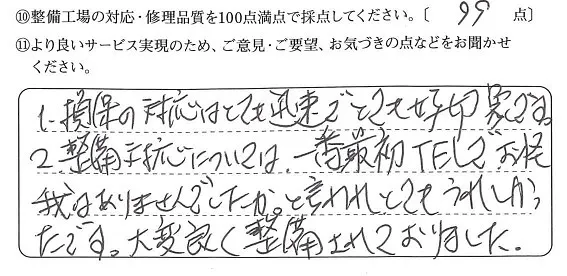 ⑩整備工場の対応・修理品質を100点満点で採点してください。〔 99 点〕
⑪より良いサービス実現のため、ご意見・ご要望、お気づきの点などをお聞かせ
ください。
1.損保の対応はとても迅速でとても好印象です。
2.整備対応については、一番最初TELでお怪
我はありませんでしたか。と言われとてもうれしかっ
たです。大変良く整備されておりました。